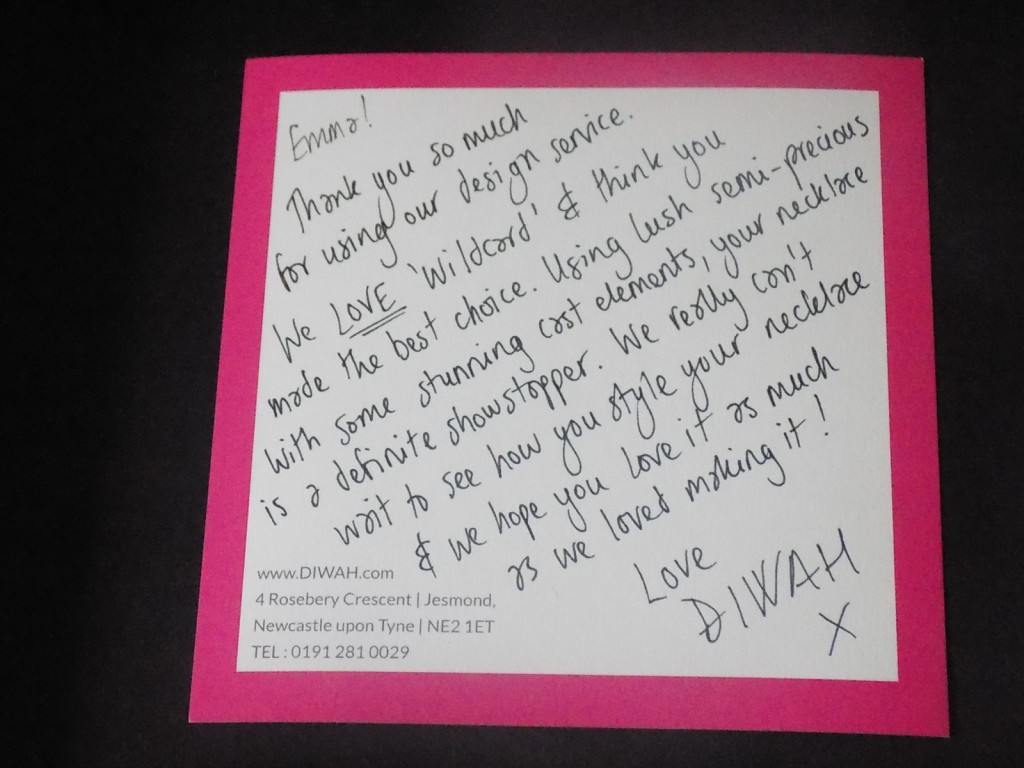 Emma!
Thank you so much
for using our design service.
We LOVE 'Wildcard' & think you
made the best choice. Using lush semi-precious
with some stunning cast elements, your necklace
is a definite showstopper. We really can't
wait to see how you style your necklace
& we hope you love it as much
as we loved making it!
Love
DIWAH
X
www.DIWAH.com
4 Rosebery Crescent | Jesmond,
Newcastle upon Tyne | NE2 1ET
TEL : 0191 281 0029